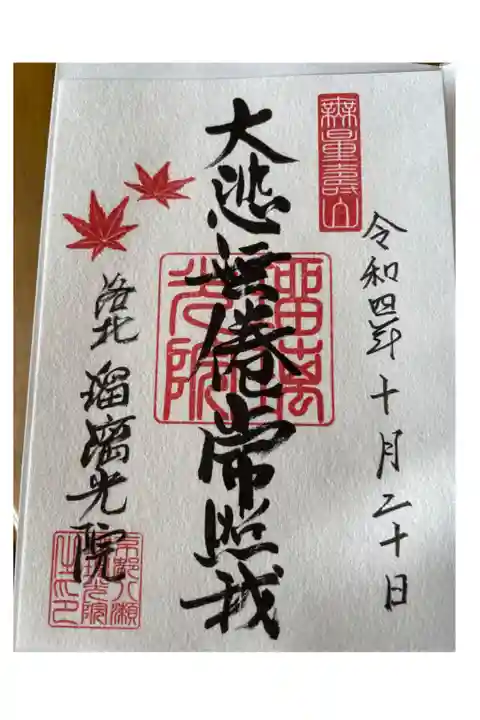 無量壽山
令和四年十月二十日
大悲無倦常照我
瑠璃
光院
洛北 瑠璃光院
京都八瀬